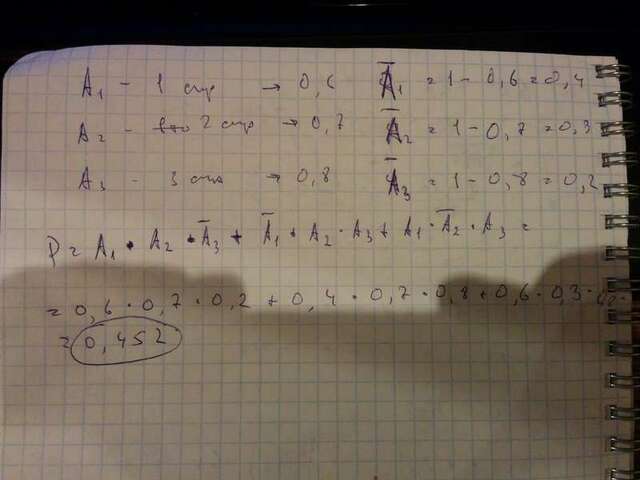 A₁ - 1 стр → 0,6 A̅₁ = 1 - 0,6 = 0,4
A₂ - 2 стр → 0,7 A̅₂ = 1 - 0,7 = 0,3
A₃ - 3 → 0,8 A̅₃ = 1 - 0,8 = 0,2
P = A₁ · A₂ · A̅₃ + A̅₁ · A₂ · A₃ + A₁ · A̅₂ · A₃ =
= 0,6 · 0,7 · 0,2 + 0,4 · 0,7 · 0,8 + 0,6 · 0,3 ·
= 0,452